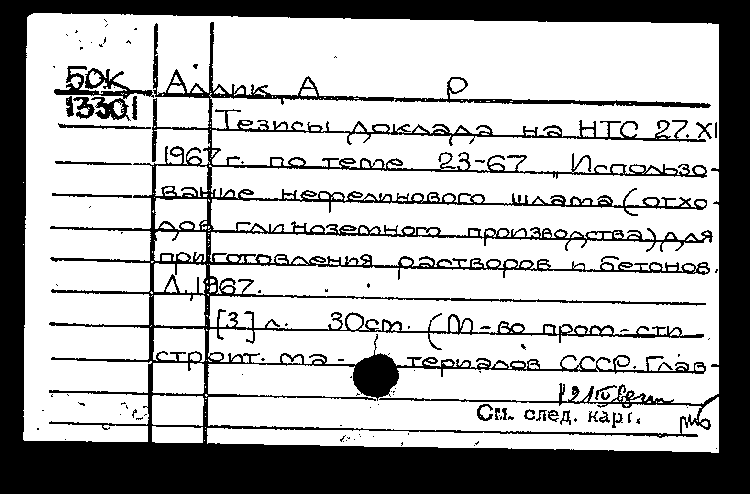 БОК Аллик, А Р
13301
Тезисы доклада на НТС 27.XI
1967 г. по теме 23-67 „Использо-
вание нефелинового шлама (отхо-
дов глиноземного производства) для
приготовления растворов и бетонов.
Л., 1967.
[3] л. 30 см. (М-во пром-сти
строит. ма- териалов СССР. Глав-
См. след. карт.